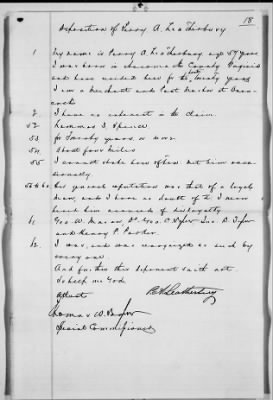 18
Deposition of Perry A. Leatherbury
1 My name is Perry A. Leatherbury age 59 years
I was born in Accomac County Virginia
and have resided here for the last twenty years
I am a Merchant and Post Master at Onan-
cock
2 I have no interest in the claim.
52
53 for twenty years, or over
54 About four miles
55 I cannot state how often met him occa-
sionally
his general reputation was that of a loyal
man, and I have no doubt of it. I never
heard him accused of disloyalty
61 Geo. W. Mason, Dr. Geo. C. Tyler Jno. D. Tyler
and Henry P. Parker
62 I was, and was recognized as such by
every one.
And further this deponent saith not
So help me God
Attest
P. A. Leatherbury
Thomas W. Taylor
Special Commissioner